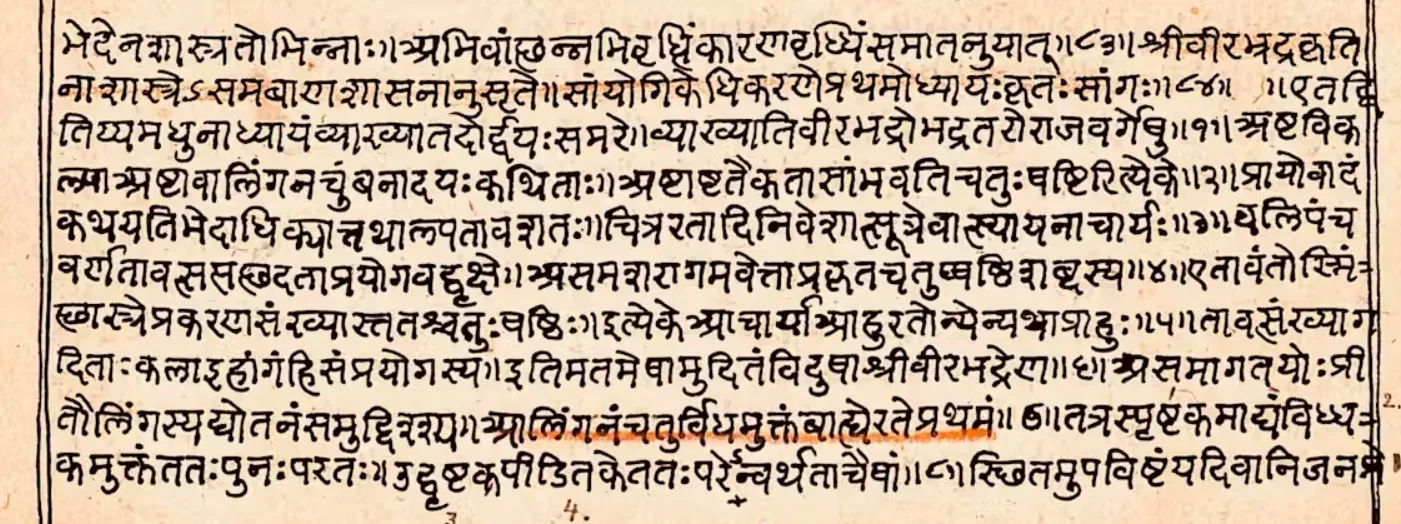 भेदेनशास्त्रतोभिन्नाः॥अभिवांछन्नभिवृद्धिंकारणवृध्धिंसमातनुयात्॥८३॥श्रीवीरभद्रकृति
नाशास्त्रेऽसमबाणशासनानुसृते॥सांयोगिकेधिकरणेप्रथमोध्यायःकृतःसांगः॥८४॥ ॥एतद्वि
तिय्यमधुनाध्यायंव्याख्यातदोर्द्वयःसमरे॥व्याख्यातिवीरभद्रोभद्रतरोराजवर्गेषु॥१॥अष्टविक
ल्पाअष्टावालिंगनचुंबनादयःकथिताः॥अष्टाष्टतैकतासांभवतिचतुःषष्टिरित्येके॥२॥प्रायोवादं
कथयतिभेदाधिक्यात्तथाल्पतावशतः॥चित्ररतादिनिवेशात्सूत्रेवात्स्यायनाचार्यः॥३॥षलिपंच
वर्णतावत्ससप्तछदताप्रयोगवद्वृक्षे॥असमशरागमवेत्ताप्रकृतचतुष्षष्ठिशब्दस्य॥४॥एतावंतोस्मिं
छास्त्रेप्रकरणसंख्यास्ततश्चतुःषष्ठिः॥इत्येकेआचार्याआहुरतोन्येन्यथाप्राहुः॥५॥तावत्संख्याग
दिताःकलाइहांगंहिसंप्रयोगस्य॥इतिमतमेषामुदितंविदुषाश्रीवीरभद्रेण॥६॥असमागतयोःप्री
तौलिंगस्यद्योतनंसमुद्दिश्य॥आलिंगनंचतुर्विधमुक्तंबाह्येरतेप्रथमं॥७॥तत्रस्पृष्टकमाद्यंविध्य
कमुक्तंततःपुनःपरतः॥उद्घृष्टकपीडितकेततःपरेन्वर्थताचैषां॥८॥स्थितमुपविष्टंयदिवानिजनमे
4.